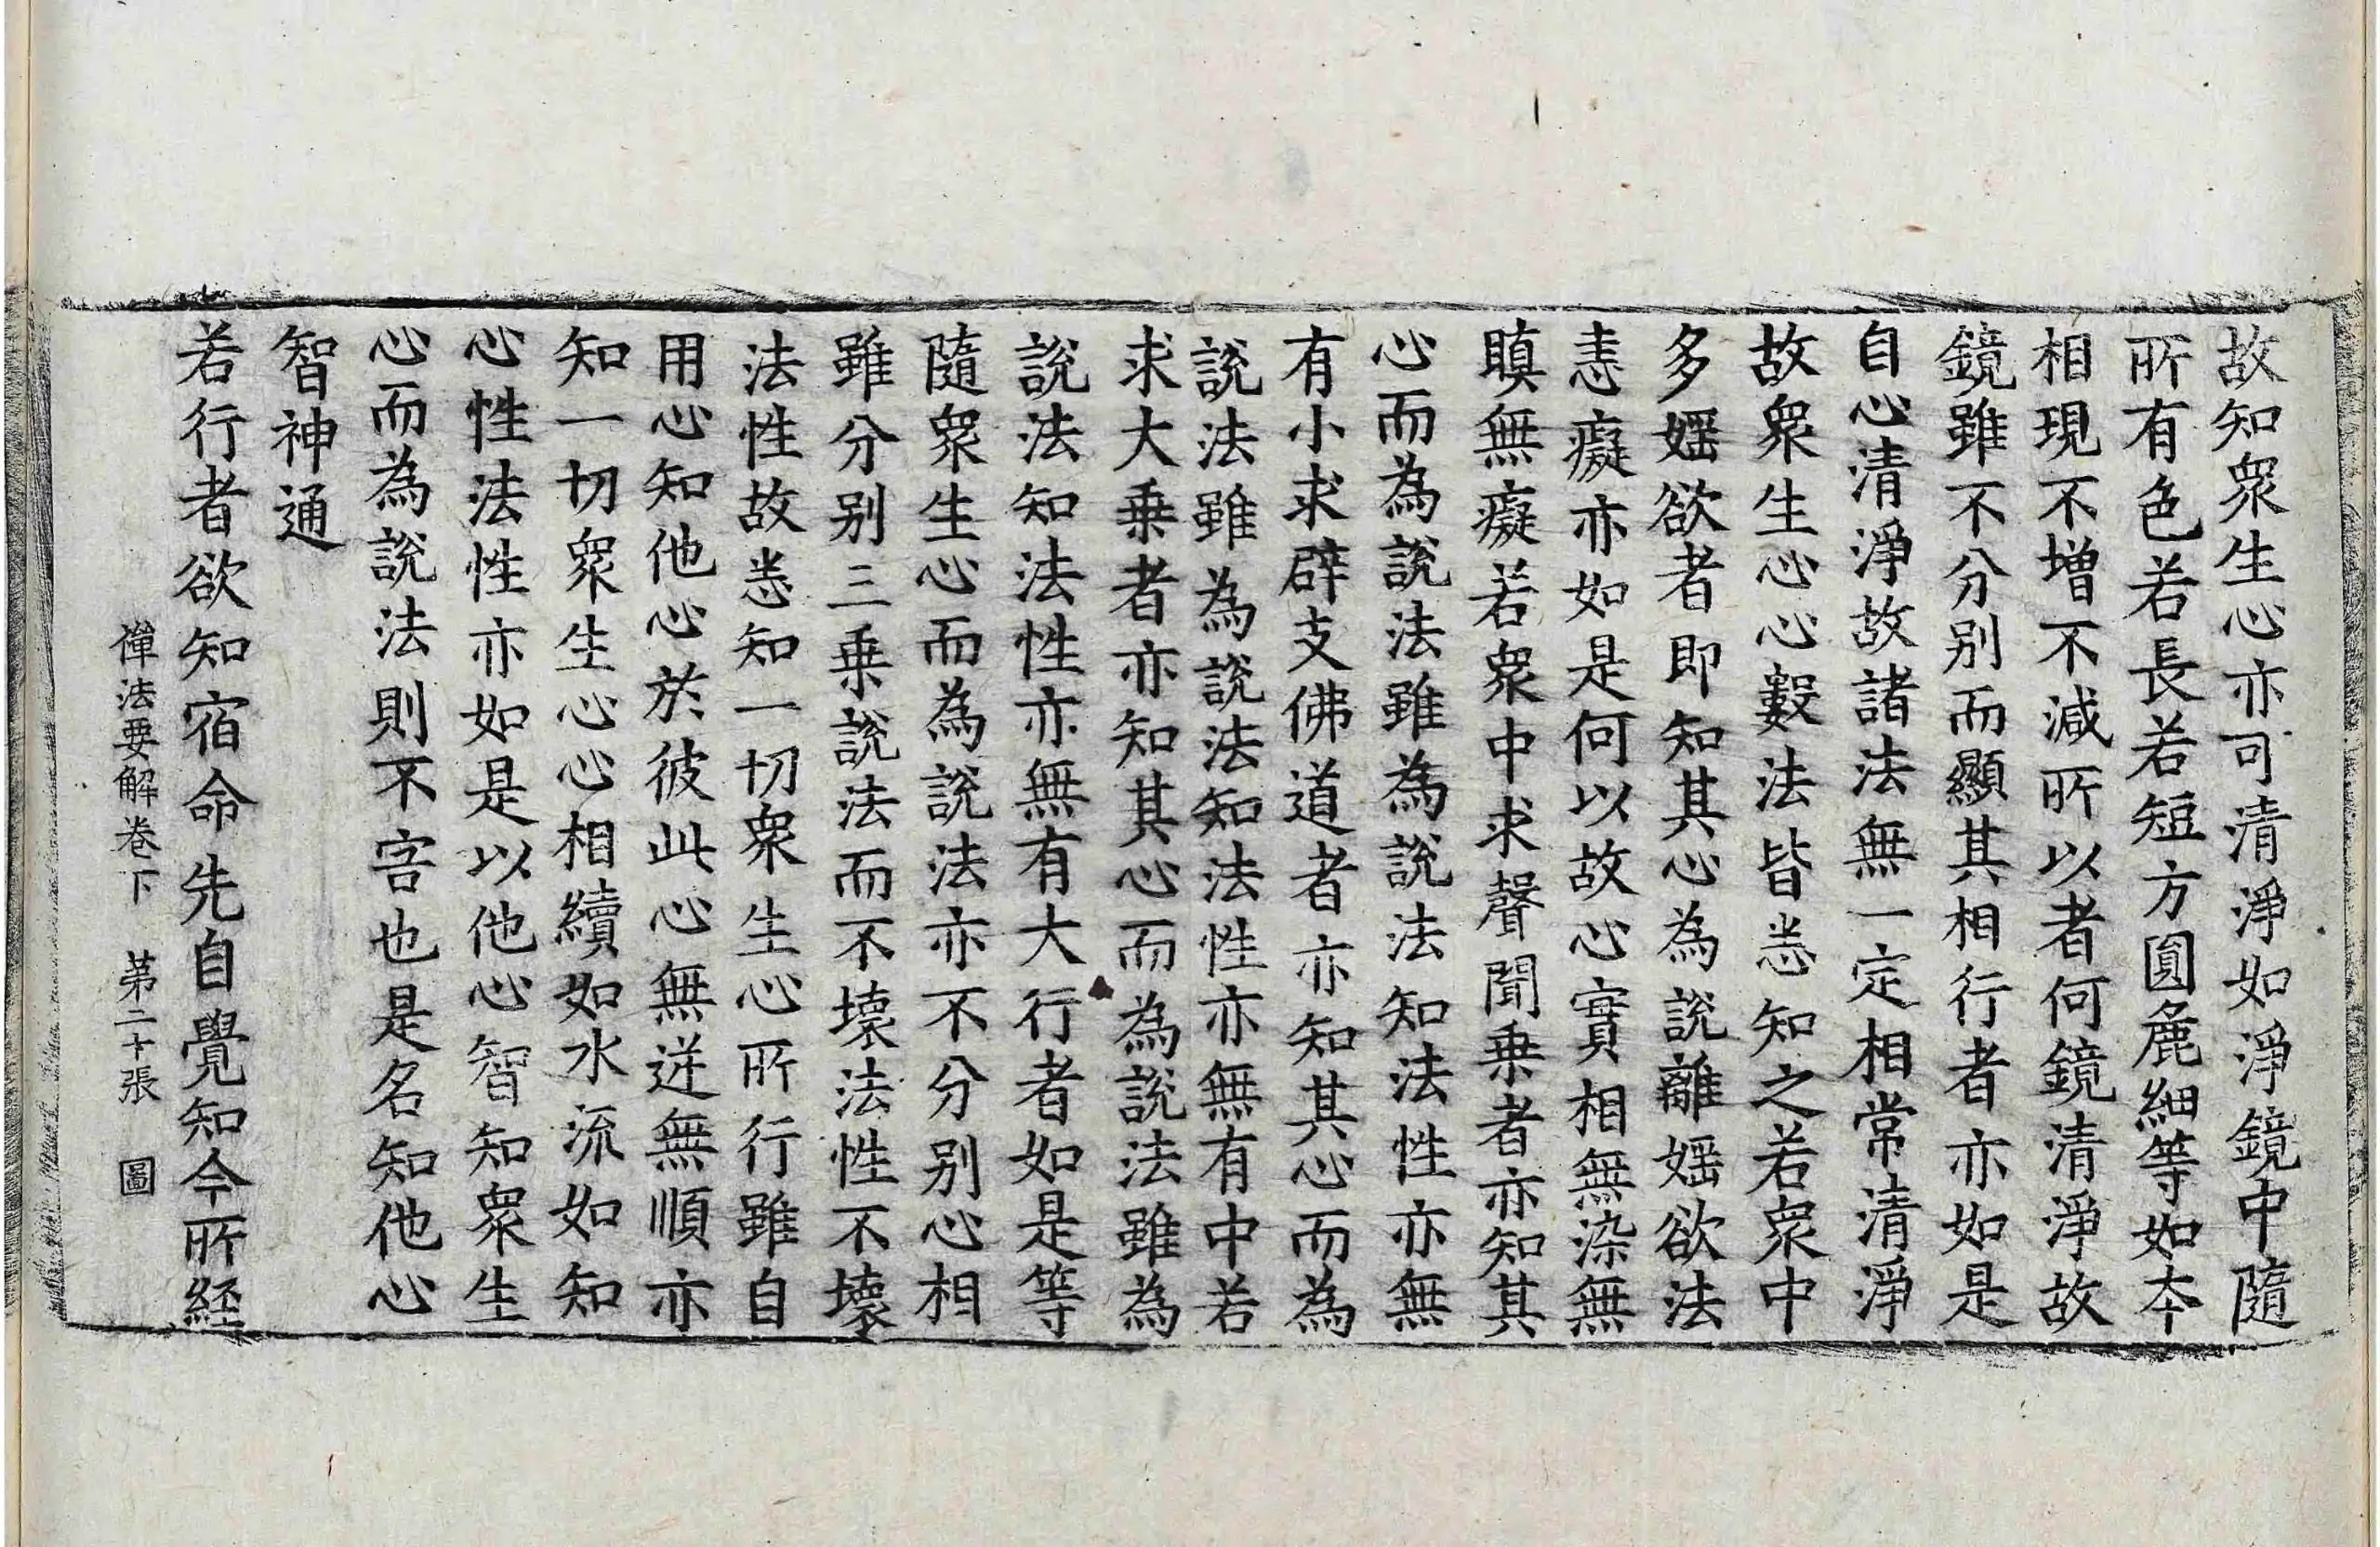 故知衆生心亦可清淨如淨鏡中隨
所有色若長若短方圓麁細等如本
相現不增不減所以者何鏡清淨故
鏡雖不分别而顯其相行者亦如是
自心清淨故諸法無一定相常清淨
故衆生心心數法皆悉知之若衆中
多婬欲者即知其心為說離婬欲法
恚癡亦如是何以故心實相無染無
瞋無癡若衆中求聲聞乗者亦知其
心而為說法雖為說法知法性亦無
有小求辟支佛道者亦知其心而為
說法雖為說法知法性亦無有中若
求大乗者亦知其心而為說法雖為
說法知法性亦無有大行者如是等
隨衆生心而為說法亦不分别心相
雖分别三乗說法而不壞法性不壞
法性故悉知一切衆生心所行雖自
用心知他心於彼此心無逆無順亦
知一切衆生心心相續如水流如知
心性法性亦如是以他心智知衆生
心而為說法則不空也是名知他心
智神通
若行者欲知宿命先自覺知今所経
禪法要解卷下 第二十張 圖